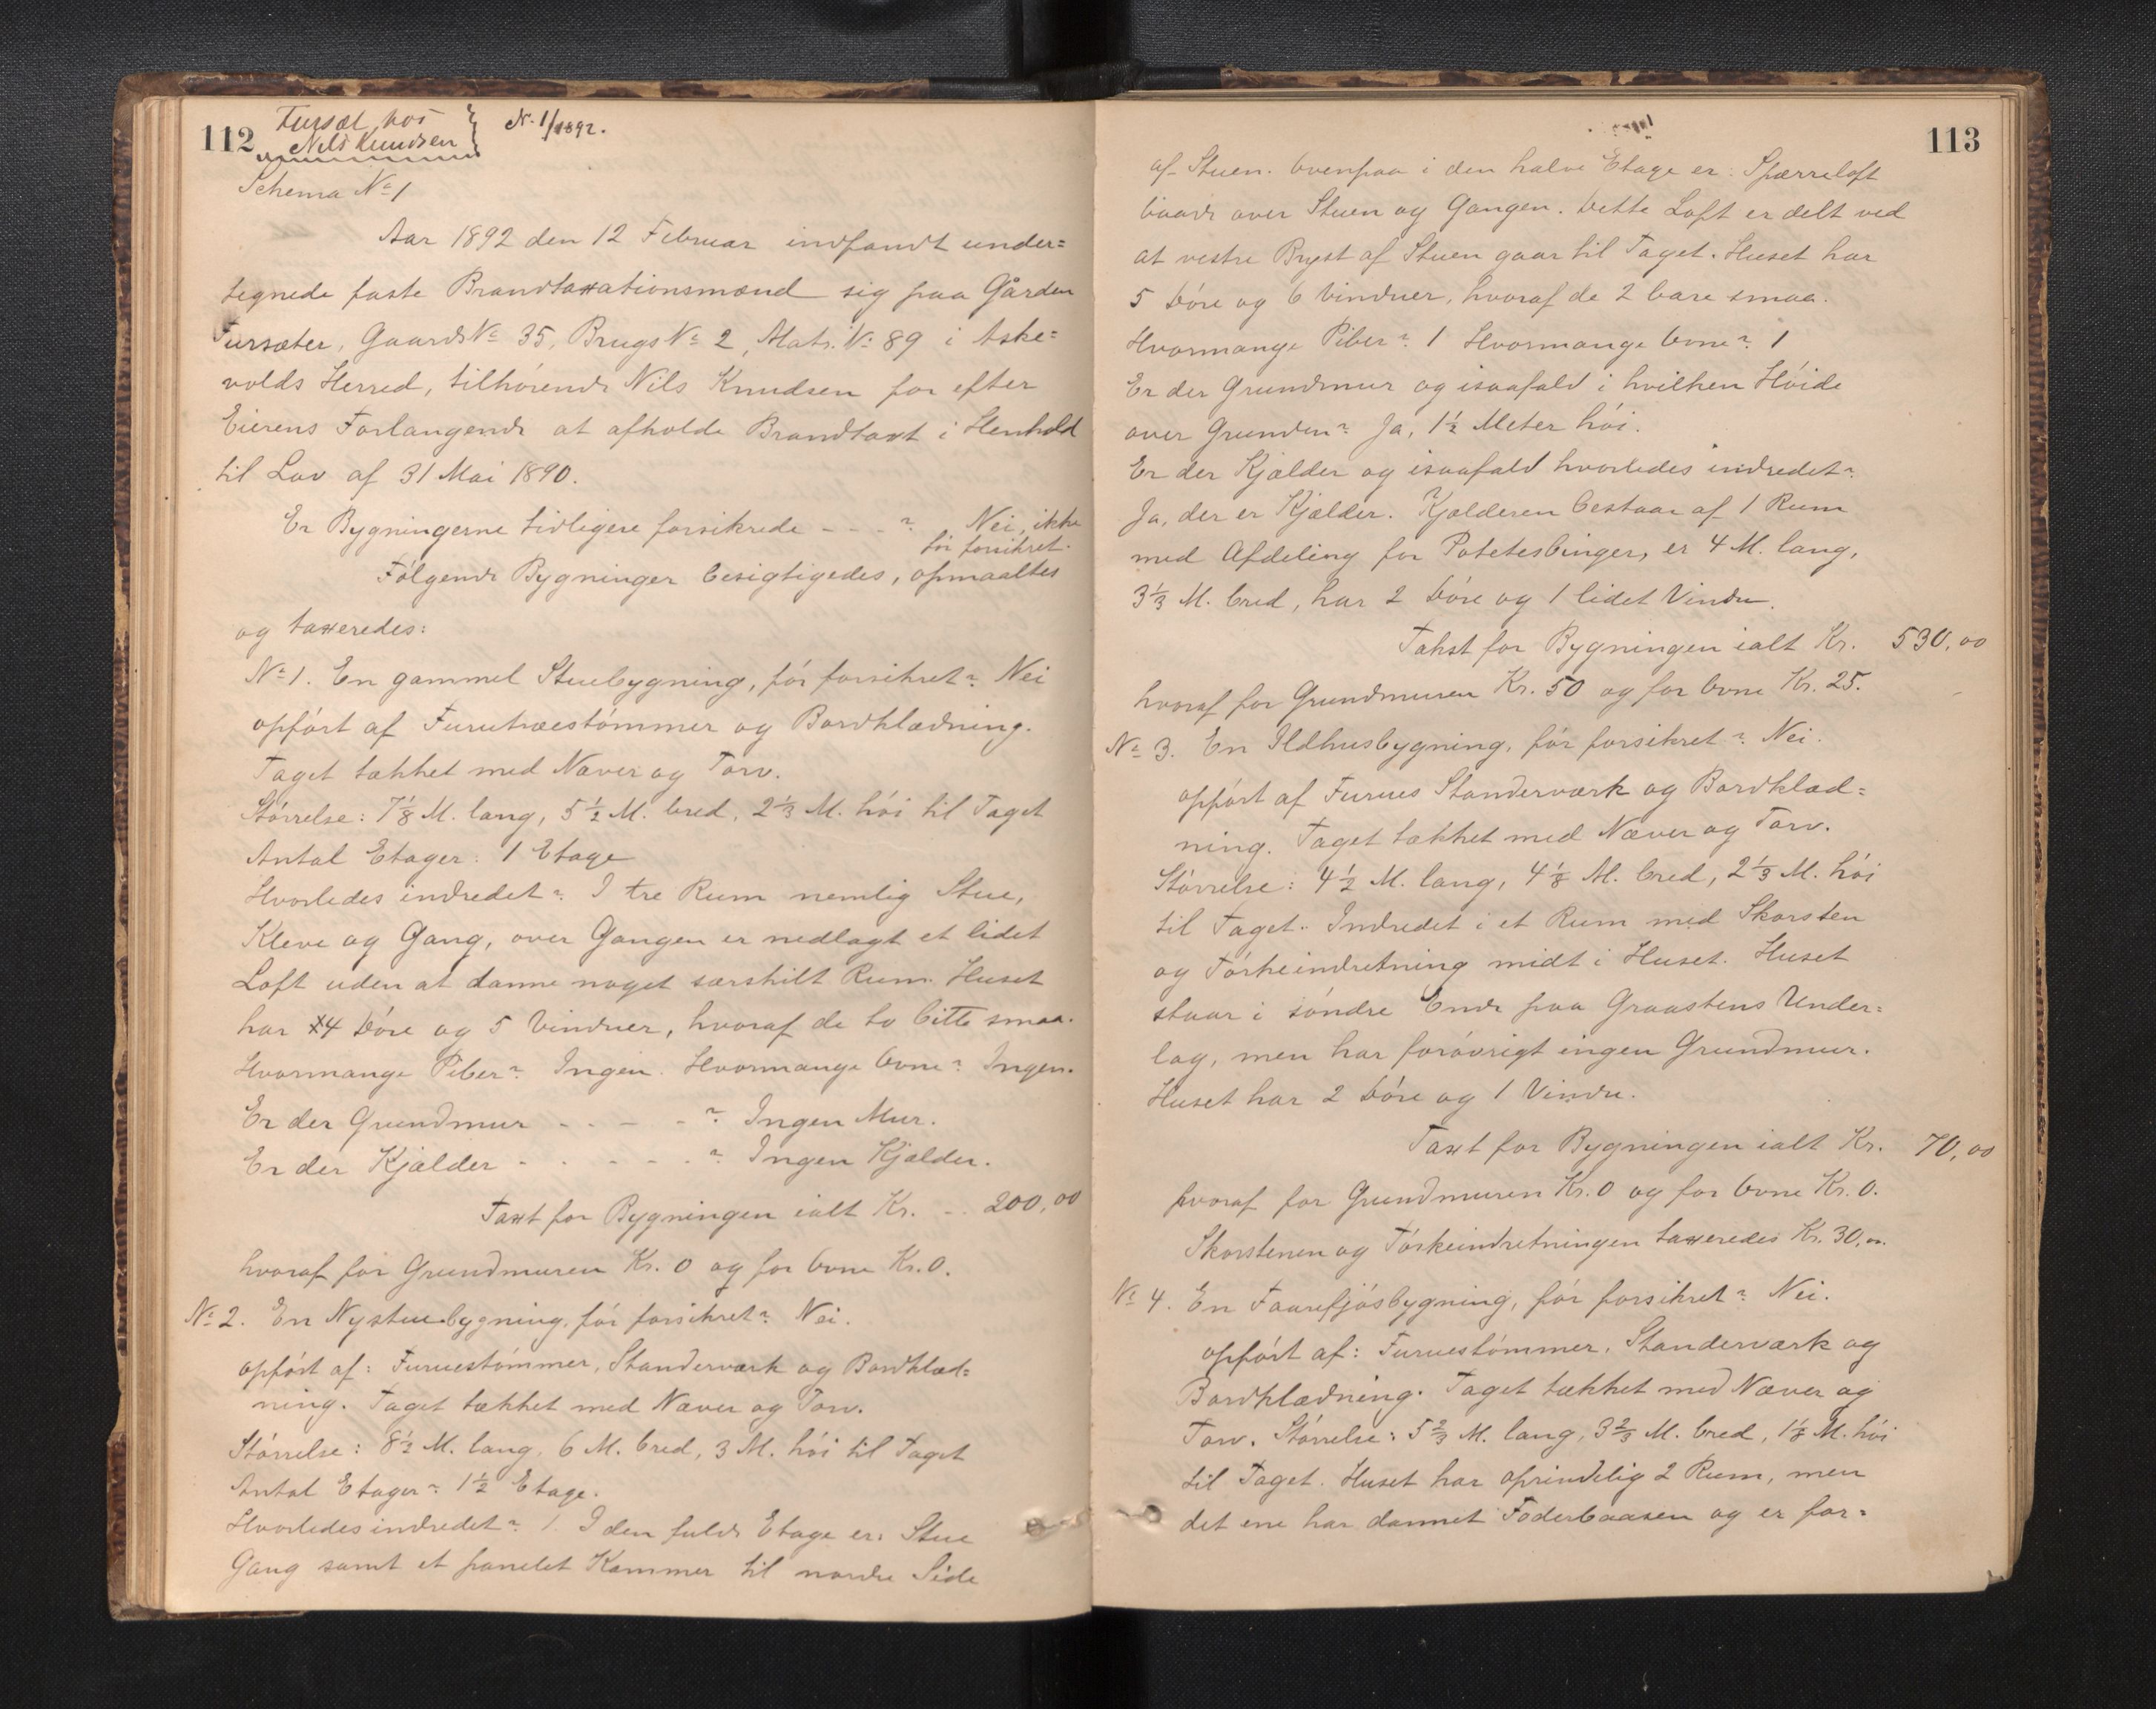 112
Fursæt, hos
Nils Knudsen } N. 1/1892.
Schema No 1
Aar 1892 den 12 Februar indfandt under=
tegnede faste Brandtaxationsmænd sig paa Gården
Fursæter, Gaards No 35, Brugs No 2, Matr. No 89 i Aske=
volds Herred, tilhørende Nils Knudsen for efter
Eierens Forlangende at afholde Brandtaxt i Henhold
til Lov af 31 Mai 1890.
Er Bygningerne tidligere forsikrede - - - ? Nei, ikke
før forsikret.
Følgende Bygninger besigtigedes, opmaaltes
og taxeredes:
No 1. En gammel Stuebygning, før forsikret? Nei
opført af Furutræestømmer og Bordklædning.
Taget tækket med Næver og Torv.
Størrelse: 7 1/8 M. lang, 5 1/2 M. bred, 2 1/3 M. høi til Taget
Antal Etager: 1 Etage
Hvorledes indredet? I tre Rum nemlig Stue,
Kleve og Gang, over Gangen er nedlagt et lidet
Loft uden at danne noget særskilt Rum. Huset
har 4 Døre og 5 Vinduer, hvoraf de to bitte smaa.
Hvormange Piber? Ingen. Hvormange Ovne? Ingen.
Er der Grundmur - - - - ? Ingen Mur.
Er der Kjælder - - - - - ? Ingen Kjælder.
Taxt for Bygningen ialt Kr. - - 200,00
hvoraf for Grundmuren Kr. 0 og for Ovne Kr. 0.
No 2. En Nystuebygning, før forsikret? Nei.
opført af: Furuestømmer, Standerværk og Bordklæd=
ning. Taget tækket med Næver og Torv.
Størrelse: 8 1/2 M. lang, 6 M. bred, 3 M. høi til Taget
Antal Etager? 1 1/2 Etage.
Hvorledes indredet? 1. I den fulde Etage er: Stue
Gang samt et panelet Kammer til nordre Side
113
af Stuen. Ovenpaa i den halve Etage er: Spærreloft
baade over Stuen og Gangen. Dette Loft er delt ved
at vestre Bryst af Stuen gaar til Taget. Huset har
5 Døre og 6 Vinduer, hvoraf de 2 bare smaa.
Hvormange Piber? 1 Hvormange Ovne? 1
Er der Grundmur og isaafald i hvilken Høide
over Grunden? Ja, 1 1/2 Meter høi.
Er der Kjælder og isaafald hvorledes indredet?
Ja, der er Kjælder. Kjælderen bestaar af 1 Rum
med Afdeling for Potetesbinger, er 4 M. lang,
3 1/3 M. bred, har 2 Døre og 1 lidet Vindu.
Takst for Bygningen ialt Kr. 530,00
hvoraf for Grundmuren Kr. 50 og for Ovne Kr. 25.
No 3. En Ildhusbygning, før forsikret? Nei.
opført af Furues Standerværk og Bordklæd=
ning. Taget tækket med Næver og Torv.
Størrelse: 4 1/2 M. lang, 4 1/8 M. bred, 2 1/3 M. høi
til Taget. Indredet i et Rum med Skorsten
og Tørkeindretning midt i Huset. Huset
staar i søndre Ende paa Graastens Under=
lag, men har forøvrigt ingen Grundmur.
Huset har 2 Døre og 1 Vindu.
Taxt for Bygningen ialt Kr. 70,00
hvoraf for Grundmuren Kr. 0 og for Ovne Kr. 0.
Skorstenen og Tørkeindretningen taxeredes Kr. 30,00.
No 4. En Faarefjøsbygning, før forsikret? Nei.
opført af: Furuestømmer, Standerværk og
Bordklædning. Taget tækket med Næver og
Torv. Størrelse: 5 2/3 M. lang, 3 2/3 M. bred, M. høi
til Taget. Huset har oprindelig 2 Rum, men
det ene har dannet Foderbaasen og er for=